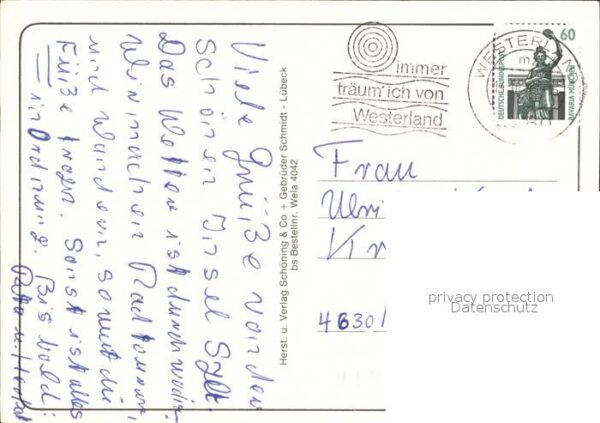 Viele Grüße von der
schönen Insel Sylt.
Das Wetter ist durchwachsen
Wir machen Radtouren,
und wandern, soweit die
Füße tragen. Sonst ist alles
in Ordnung. Bis bald!
Herst. u. Verlag Schöning & Co + Gebrüder Schmidt - Lübeck
bs Bestellnr. Wela 4042
immer
träum' ich von
Westerland
WESTERL
60
DEUTSCHE BUNDESPOST
BAVARIA MÜNCHEN
Frau
Ulri
Kr
4630/
privacy protection
Datenschutz